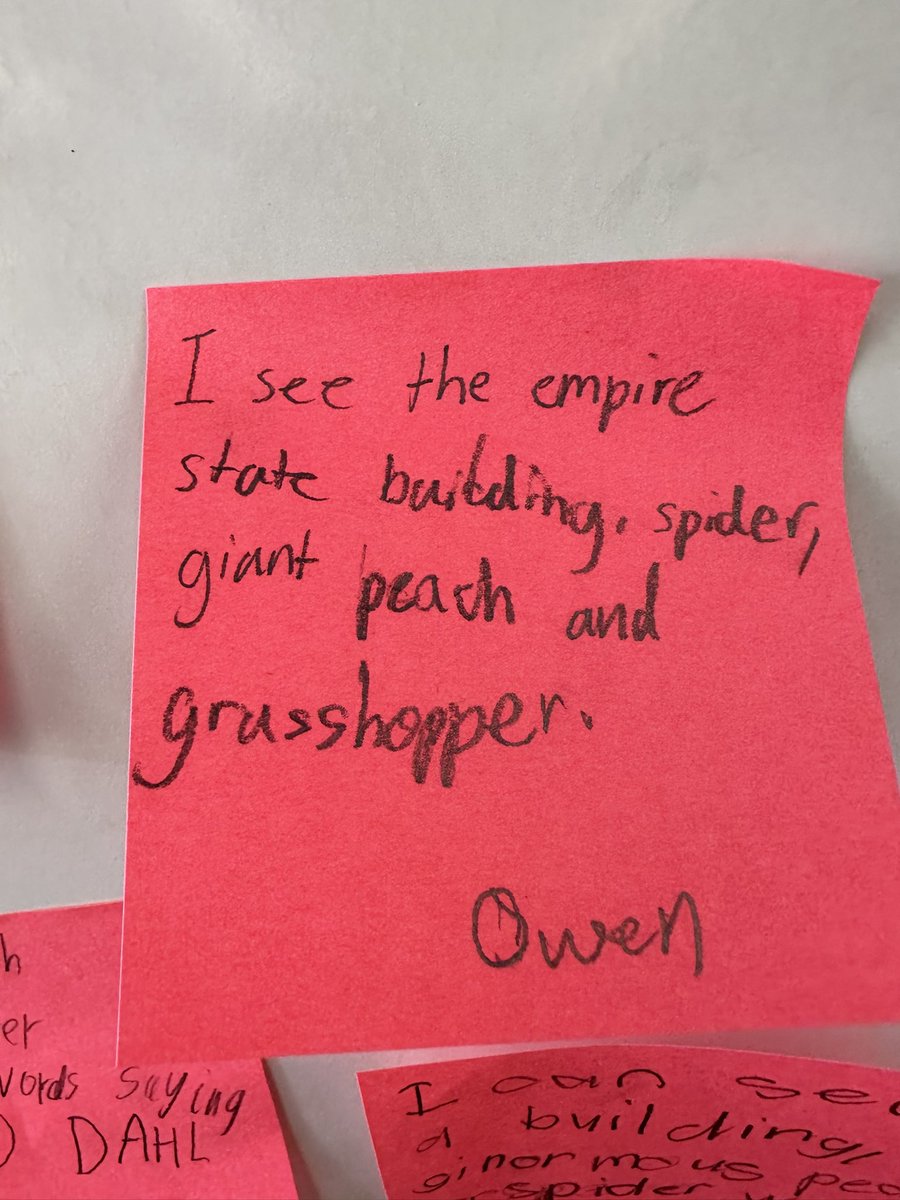 I see the empire
state building. spider,
giant peach and
grasshopper.
Owen
h
er
words saying
D DAHL
I can see
a building,
ginormous pea
spider